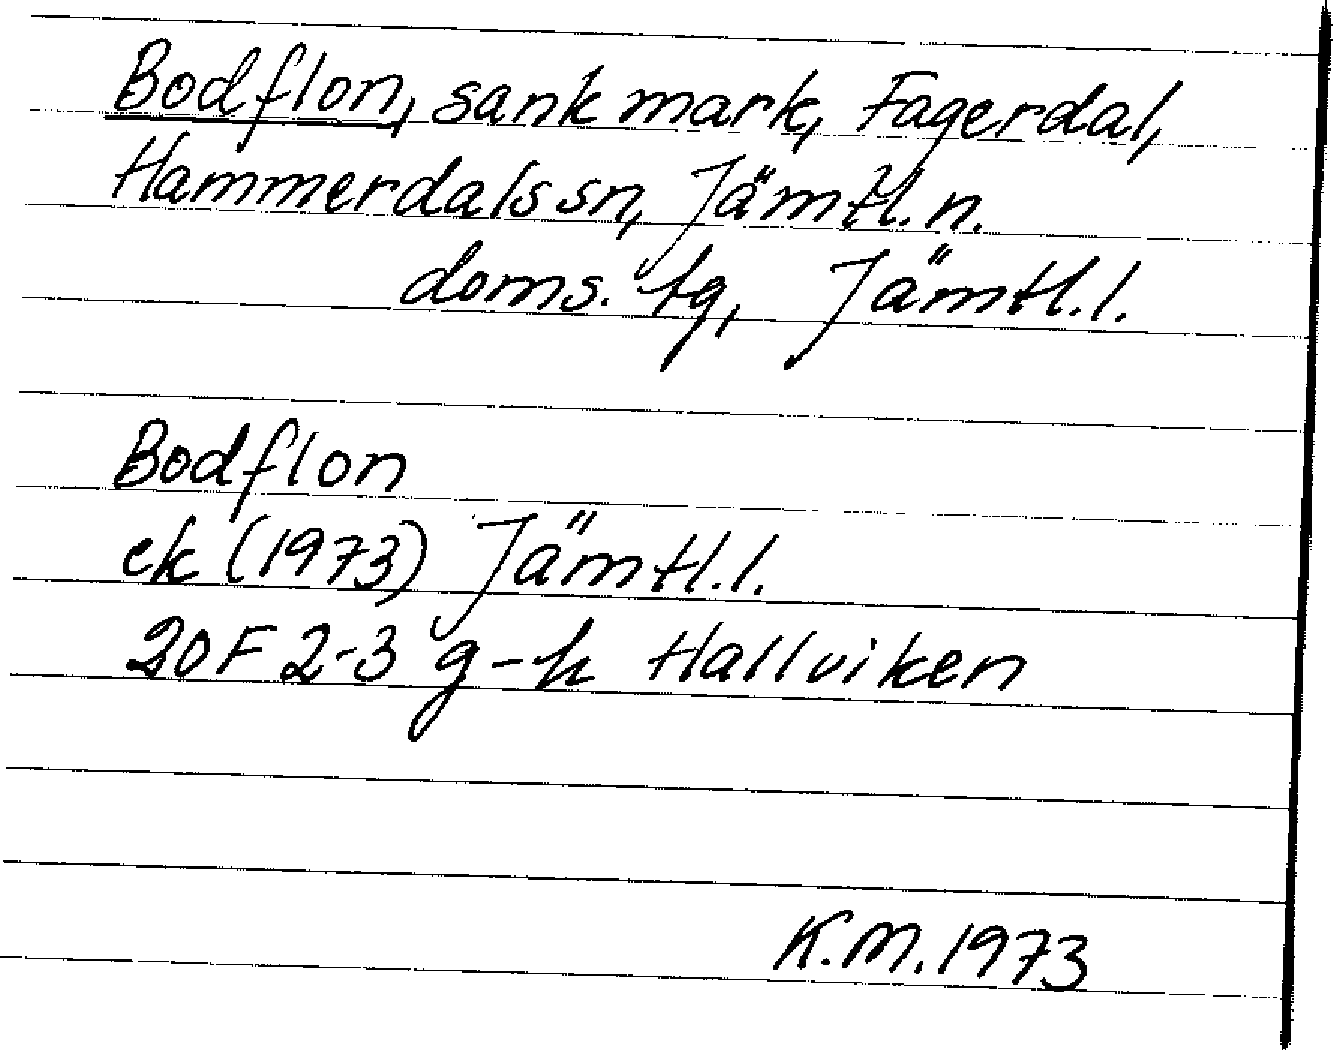 Bodflon, sank mark, Fagerdal,
Hammerdals sn, Jämtl. n.
doms. tg, Jämtl. l.
Bodflon
ek (1973) Jämtl. l.
20F 2-3 g-h Hallviken
K.M. 1973